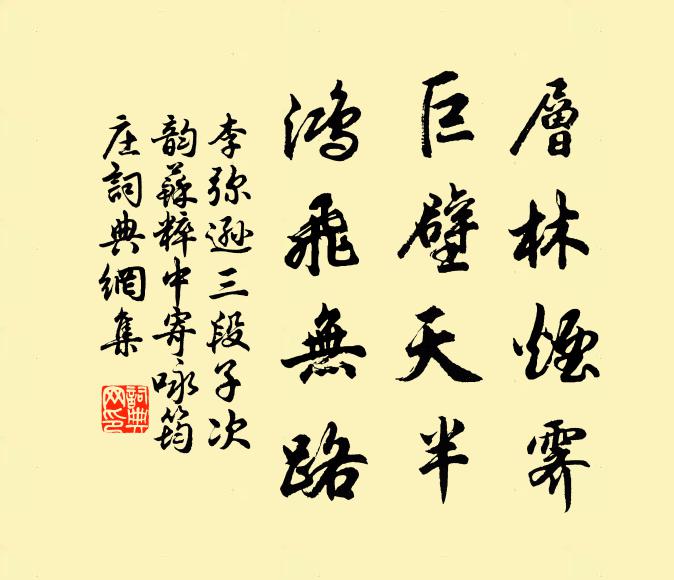 層林煙霽
巨壁天半
鴻飛無路
李弥遜三段子次
韵蘇粹中寄咏筠
庄詞典網集
詞典網印